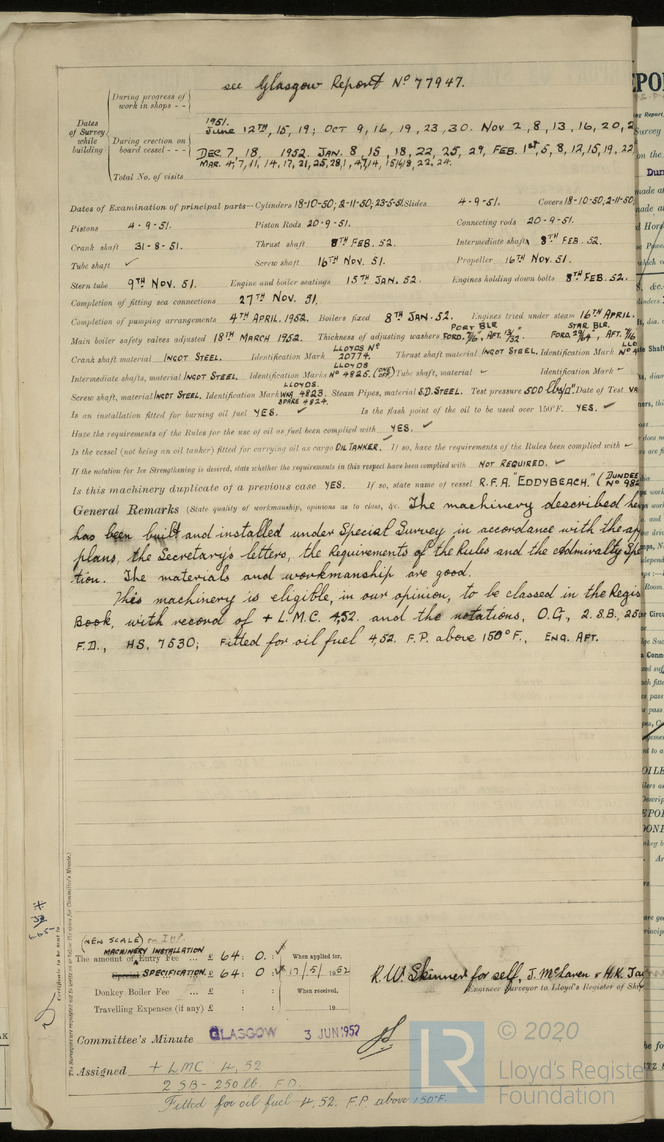 see Glasgow Report No 77947.
During progress of work in shops - -
Dates of Survey while building
During erection on board vessel - - -
1951.
June 12TH, 15, 19; OCT 9, 16, 19, 23, 30. NOV 2, 8, 13, 16, 20, 2
DEC 7, 18. 1952. JAN. 8, 15, 18, 22, 25, 29, FEB. 1st, 5, 8, 12, 15, 19, 22
MAR. 4, 7, 11, 14, 17, 21, 25, 28, 1, 4, 7, 14, 15, 16, 18, 22, 24.
Total No. of visits
Dates of Examination of principal parts—Cylinders 18-10-50; 2-11-50; 23-5-51. Slides 4-9-51. Covers 18-10-50; 2-11-50;
Pistons 4-9-51. Piston Rods 20-9-51. Connecting rods 20-9-51.
Crank shaft 31-8-51. Thrust shaft 8TH FEB. 52. Intermediate shafts 8TH FEB. 52.
Tube shaft ✓ Screw shaft 16TH NOV. 51. Propeller 16TH NOV. 51.
Stern tube 9TH NOV. 51. Engine and boiler seatings 15TH JAN. 52. Engines holding down bolts 8TH FEB. 52.
Completion of fitting sea connections 27TH NOV. 51.
Completion of pumping arrangements 4TH APRIL. 1952. Boilers fixed 8TH JAN. 52. Engines tried under steam 16TH APRIL.
Main boiler safety valves adjusted 18TH MARCH 1952. Thickness of adjusting washers PORT BLR FORD. 7/16", AFT. 13/32" STAR. BLR. FORD. 29/64", AFT. 7/16
Crank shaft material INGOT STEEL. Identification Mark LLOYDS No 20774. Thrust shaft material INGOT STEEL. Identification Mark LLO No
Intermediate shafts, material INGOT STEEL. Identification Marks LLOYDS No 4825. Tube shaft, material ✓ Identification Mark ✓
Screw shaft, material INGOT STEEL. Identification Mark LLOYDS. WKG 4823. SPARE 4824. Steam Pipes, material S.D. STEEL. Test pressure 500 lbs/□" Date of Test VA
Is an installation fitted for burning oil fuel YES. ✓ Is the flash point of the oil to be used over 150°F. YES. ✓
Have the requirements of the Rules for the use of oil as fuel been complied with YES. ✓
Is the vessel (not being an oil tanker) fitted for carrying oil as cargo OIL TANKER. If so, have the requirements of the Rules been complied with ✓
If the notation for Ice Strengthening is desired, state whether the requirements in this respect have been complied with NOT REQUIRED. ✓
Is this machinery duplicate of a previous case YES. If so, state name of vessel R.F.A. "EDDYBEACH." (DUNDEE No 982
General Remarks (State quality of workmanship, opinions as to class, &c. The machinery described he
has been built and installed under Special Survey in accordance with the app
plans, the Secretary's letters, the Requirements of the Rules and the Admiralty Spe
tion. The materials and workmanship are good.
This machinery is eligible, in our opinion, to be classed in the Regis
Book, with record of + L.M.C. 4,52. and the notations, O.G., 2.S.B., 25
F.D., HS, 7530; Fitted for oil fuel 4,52. F.P. above 150°F., ENG. AFT.
(NEW SCALE)
MACHINERY INSTALLATION
The amount of Entry Fee ... £ 64 : 0 : When applied for,
Special SPECIFICATION. £ 64 : 0 : 17/5/1952
Donkey Boiler Fee ... £ : : When received,
Travelling Expenses (if any) £ : : 19
R.W. Skinner for self, J. McLaren & H.K. Ta
Engineer Surveyor to Lloyd's Register of Ship
Committee's Minute GLASGOW 3 JUN 1952
Assigned + LMC 4,52
2 SB - 250 lb. F.D.
Fitted for oil fuel 4,52. F.P. above 150°F.
© 2020
LR
Lloyd's Register
Foundation